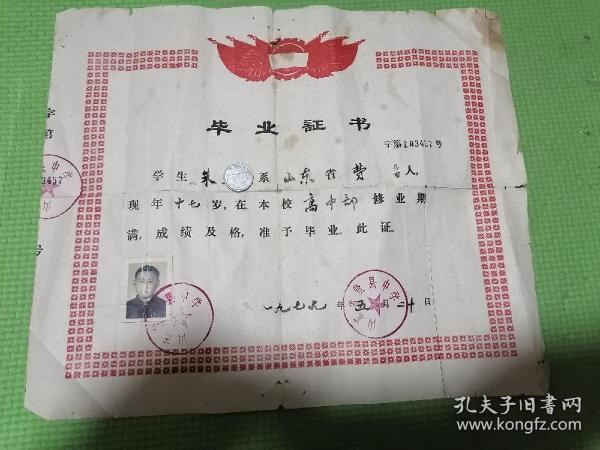 毕业证书
字第203457号
学生朱 系山东省费县市人,
现年十七岁,在本校高中部修业期
满,成绩及格,准予毕业。此证。
一九七九年五月二十日
字第
3457
号
孔夫子旧书网
www.kongfz.com